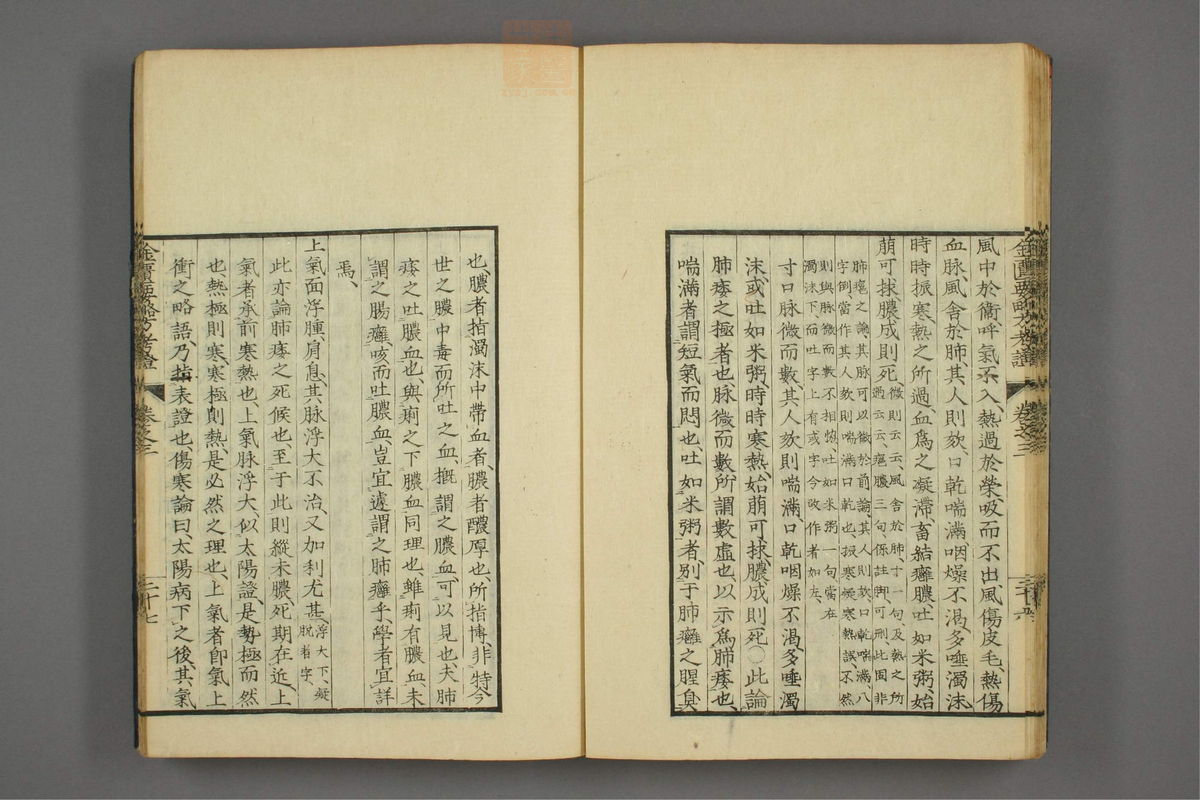 風中於衛、呼氣不入、熱過於榮、吸而不出、風傷皮毛、熱傷
血脉、風舍於肺、其人則欬、口乾喘滿、咽燥不渴、多唾濁沫、
時時振寒、熱之所過、血爲之凝滯、畜結癰膿、吐如米粥、始
萌可捄、膿成則死、微則云云、風舍於肺、十一句、及熱之所
過云云、癰膿三句、係註脚、可刪、此固非
肺癰之論、其脉可以微於前論、其人則欬、口乾喘滿八
字倒、當作其人欬則喘滿口乾也、振寒煩寒熱誤、不然
則與脉微而數不相應、吐如米粥一句、當在
濁沫下、而吐字上有或字、今改作者如左、
寸口脉微而數、其人欬則喘滿、口乾咽燥不渴、多唾濁
沫、或吐如米粥、時時寒熱、始萌可捄、膿成則死、〇此論
肺痿之極者也、脉微而數、所謂數虛也、以示爲肺痿也、
喘滿者、謂短氣而悶也、吐如米粥者、別于肺癰之腥臭
金匱要略方考證
卷之三
二十六
也、膿者、指濁沫中帶血者、膿者醲厚也、所指博、非特今
世之膿、中毒而所吐之血、概謂之膿血、可以見也、夫肺
痿之吐膿血也、與痢之下膿血同理也、雖痢有膿血、未
謂之腸癰、咳而吐膿血、豈宜遽謂之肺癰乎、學者宜詳
焉、
上氣面浮腫、肩息、其脉浮大、不治、又加利尤甚、浮大下、疑
脫者字、
此亦論肺痿之死候也、至于此則縱未膿、死期在近、上
氣者、承前寒熱也、上氣脉浮大、似太陽證、是勢極而然
也、熱極則寒、寒極則熱、是必然之理也、上氣者、卽氣上
衝之略語、乃指表證也、傷寒論曰、太陽病、下之後、其氣
金匱要略方考證
卷之三
二十七